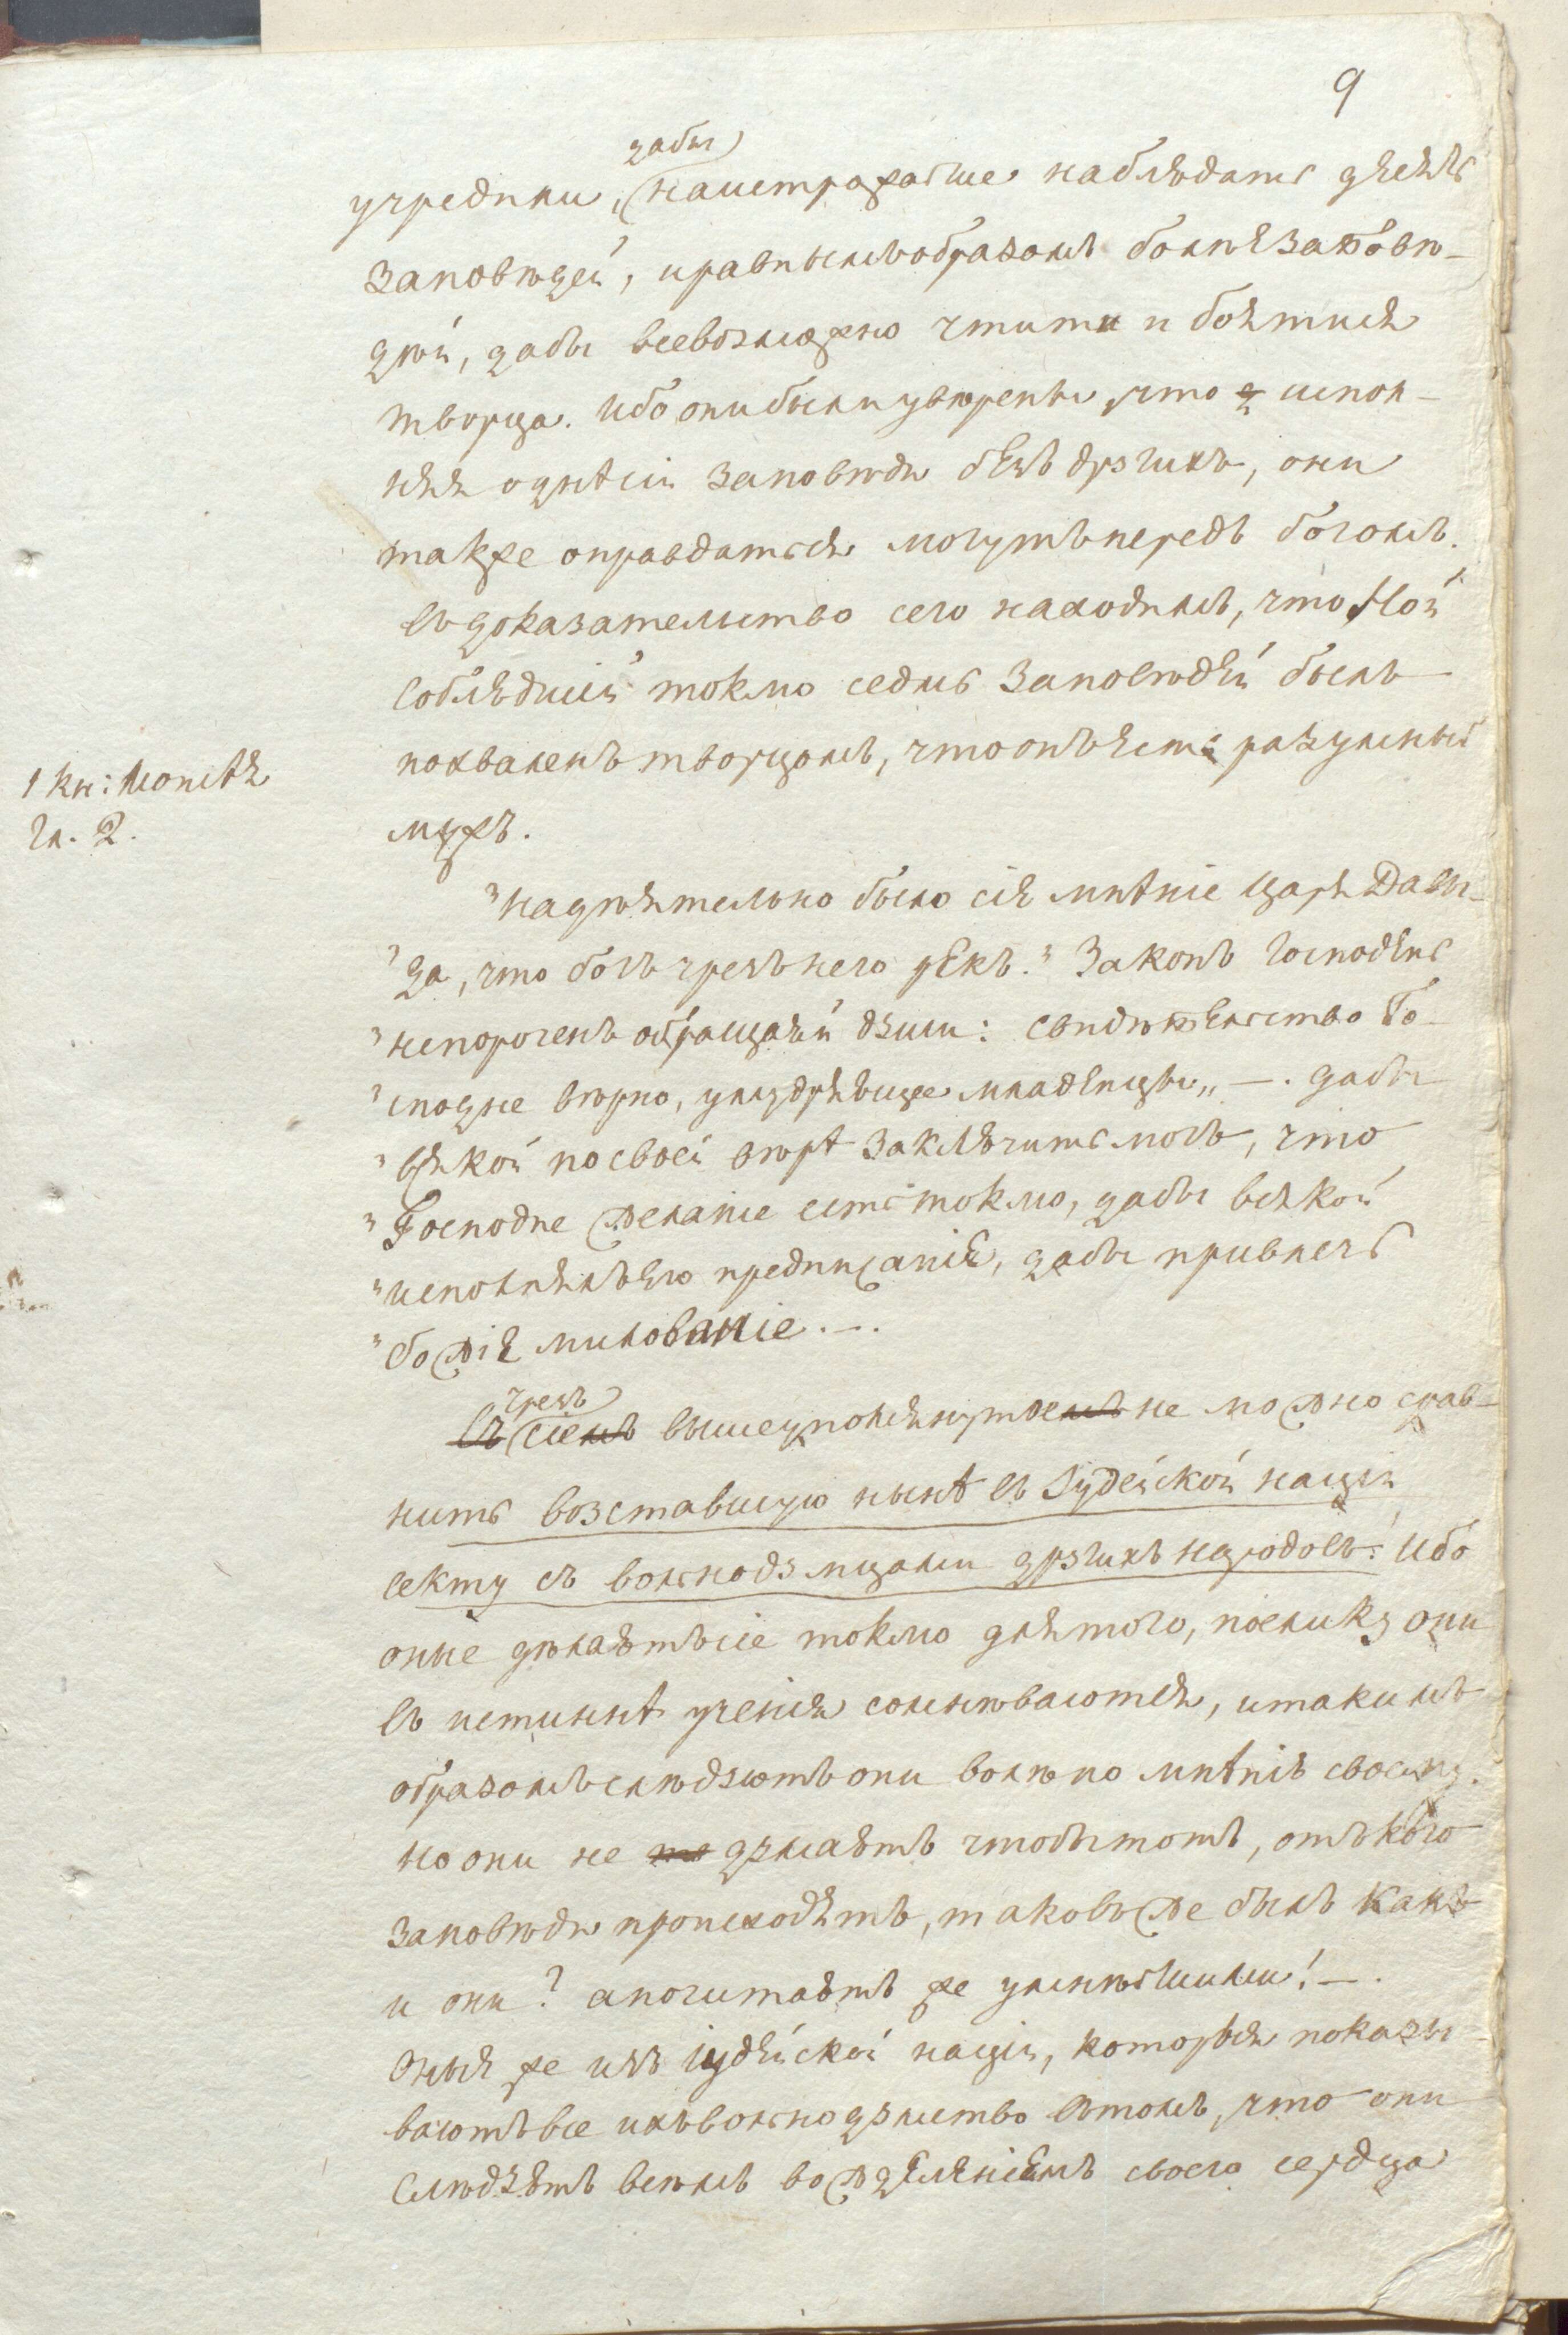 9
дабы
учредили, наистрожайше наблюдать десять
заповѣдей, и равнымъ образомъ болѣе заповѣ-
дѣй, дабы всевозможно чтити и боятися
творца. Ибо они были увѣрены, что испол-
няя однѣ сіи заповѣди безъ другихъ, они
также оправдаться могутъ передъ богомъ.
въ доказательство сего находимъ, что Ной
соблюдшій токмо седмь заповѣдей былъ
похваленъ творцомъ, что онъ есть разумный
мужъ.
1 кн: Моисѣя
гл. 2.
"надѣятельно было сіе мнѣніе Царя Давы-
"да, что богъ чрезъ него рекъ." Законъ Господень
"непороченъ обращаяй души: свидѣтельство Го-
"сподне вѣрно, умудряющее младенцы" —. дабы
"всякой по своей вѣрѣ заключить могъ, что
"Господне желаніе есть токмо, дабы всякой
"исполнялъ его предписанія, дабы привлечь
"божіе милованіе. —.
чрезъ
Съ симъ вышеупомянутое не можно срав-
нить возставшую нынѣ въ Іудейской націи
секту съ вольнодумцами другихъ народовъ: Ибо
оные дѣлаютъ сіе токмо для того, поелику они
въ истиннѣ ученія сомнѣваются, и такимъ
образомъ слѣдуютъ они волѣ по мнѣнію своему.
но они не думаютъ чтобы тотъ, отъ кого
заповѣди происходятъ, таковъ же былъ какъ
и они? а почитаютъ же умнѣйшими! —.
Оныя же изъ іудейской націи, которыя показы-
ваютъ все ихъ вольнодумство въ томъ, что они
слѣдуютъ всѣмъ вожделеніемъ своего сердца